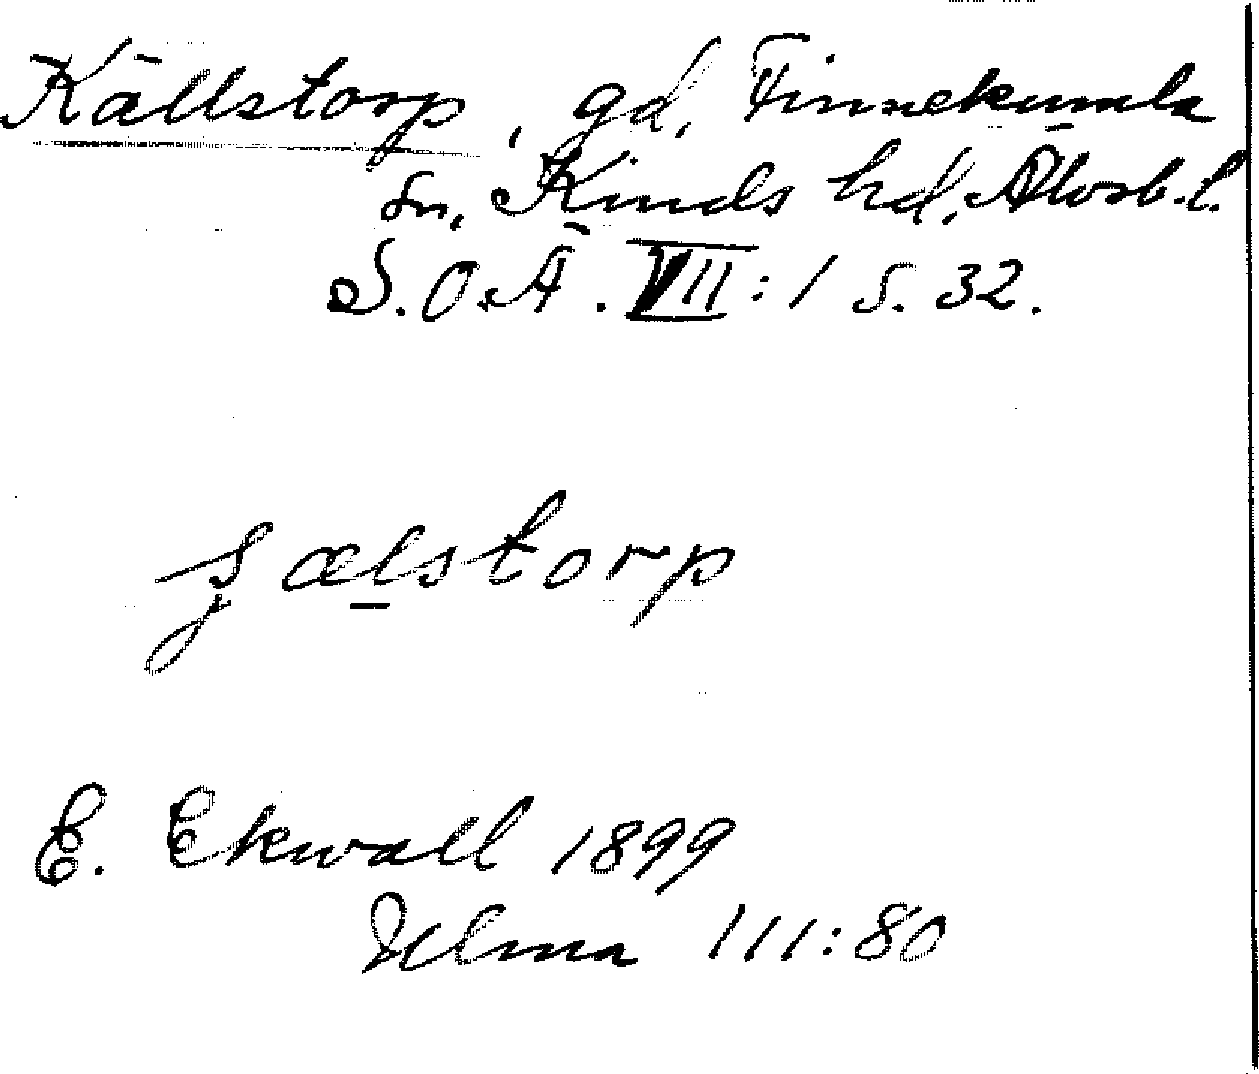 Källstorp, gd, Finnekumla
sn, Kinds hd, Älvsb. l.
S.O.Ä. VII:1 s. 32.
E. Ekwall 1899
Ulma 111:80